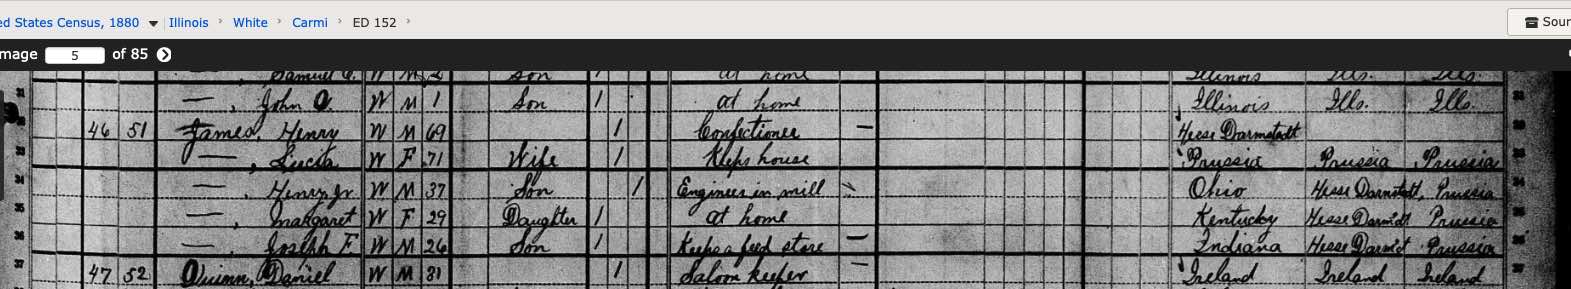 ed States Census, 1880 Illinois White Carmi ED 152
Sour
mage 5 of 85
Samuel W M 2 Son 1 at home Illinois Ills. Ills.
31 —, John O. W M 1 Son 1 at home Illinois Ills. Ills. 31
46 51 James, Henry W M 69 1 Confectioner — Hesse Darmstadt
33 —, Lucia W F 71 Wife 1 Keeps house Prussia Prussia Prussia 33
34 —, Henry Jr W M 37 Son 1 Engineer in mill Ohio Hesse Darmstadt, Prussia 34
35 —, Margaret W F 29 Daughter 1 at home Kentucky Hesse Darmdt Prussia 35
36 — Joseph F. W M 26 Son 1 Keeps a feed store — Indiana Hesse Darmst Prussia 36
37 47 52 Quinn, Daniel W M 31 1 Saloon keeper — Ireland Ireland Ireland 37